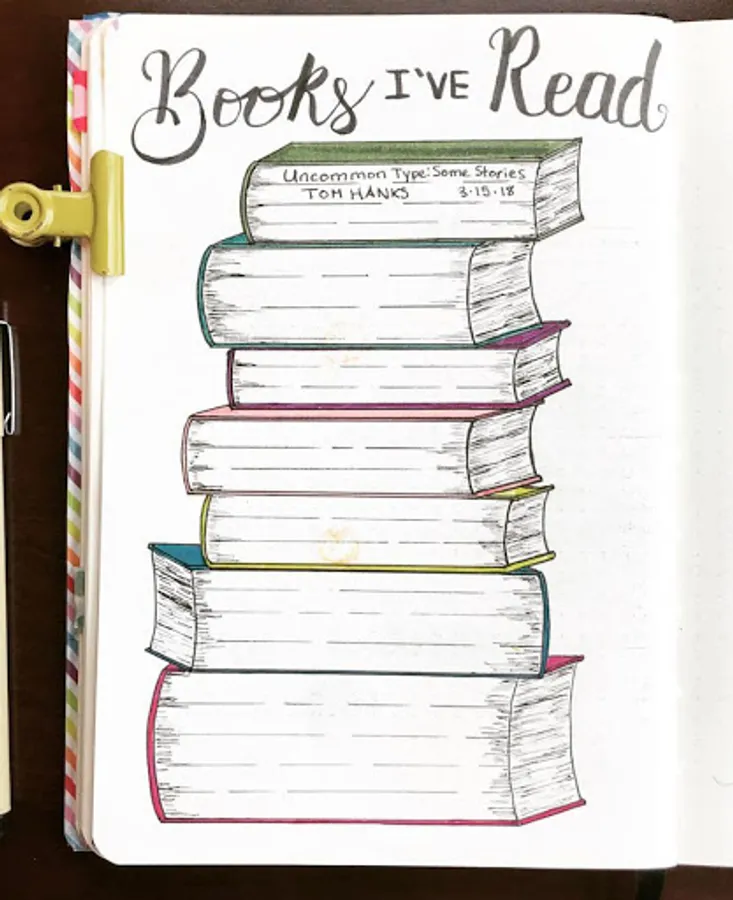 Books I'VE Read
Uncommon Type: Some Stories
TOM HANKS 3.15.18